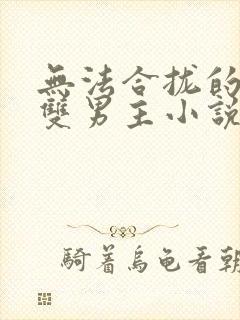 無法合拢的
雙男主小説
騎着烏龜看朝